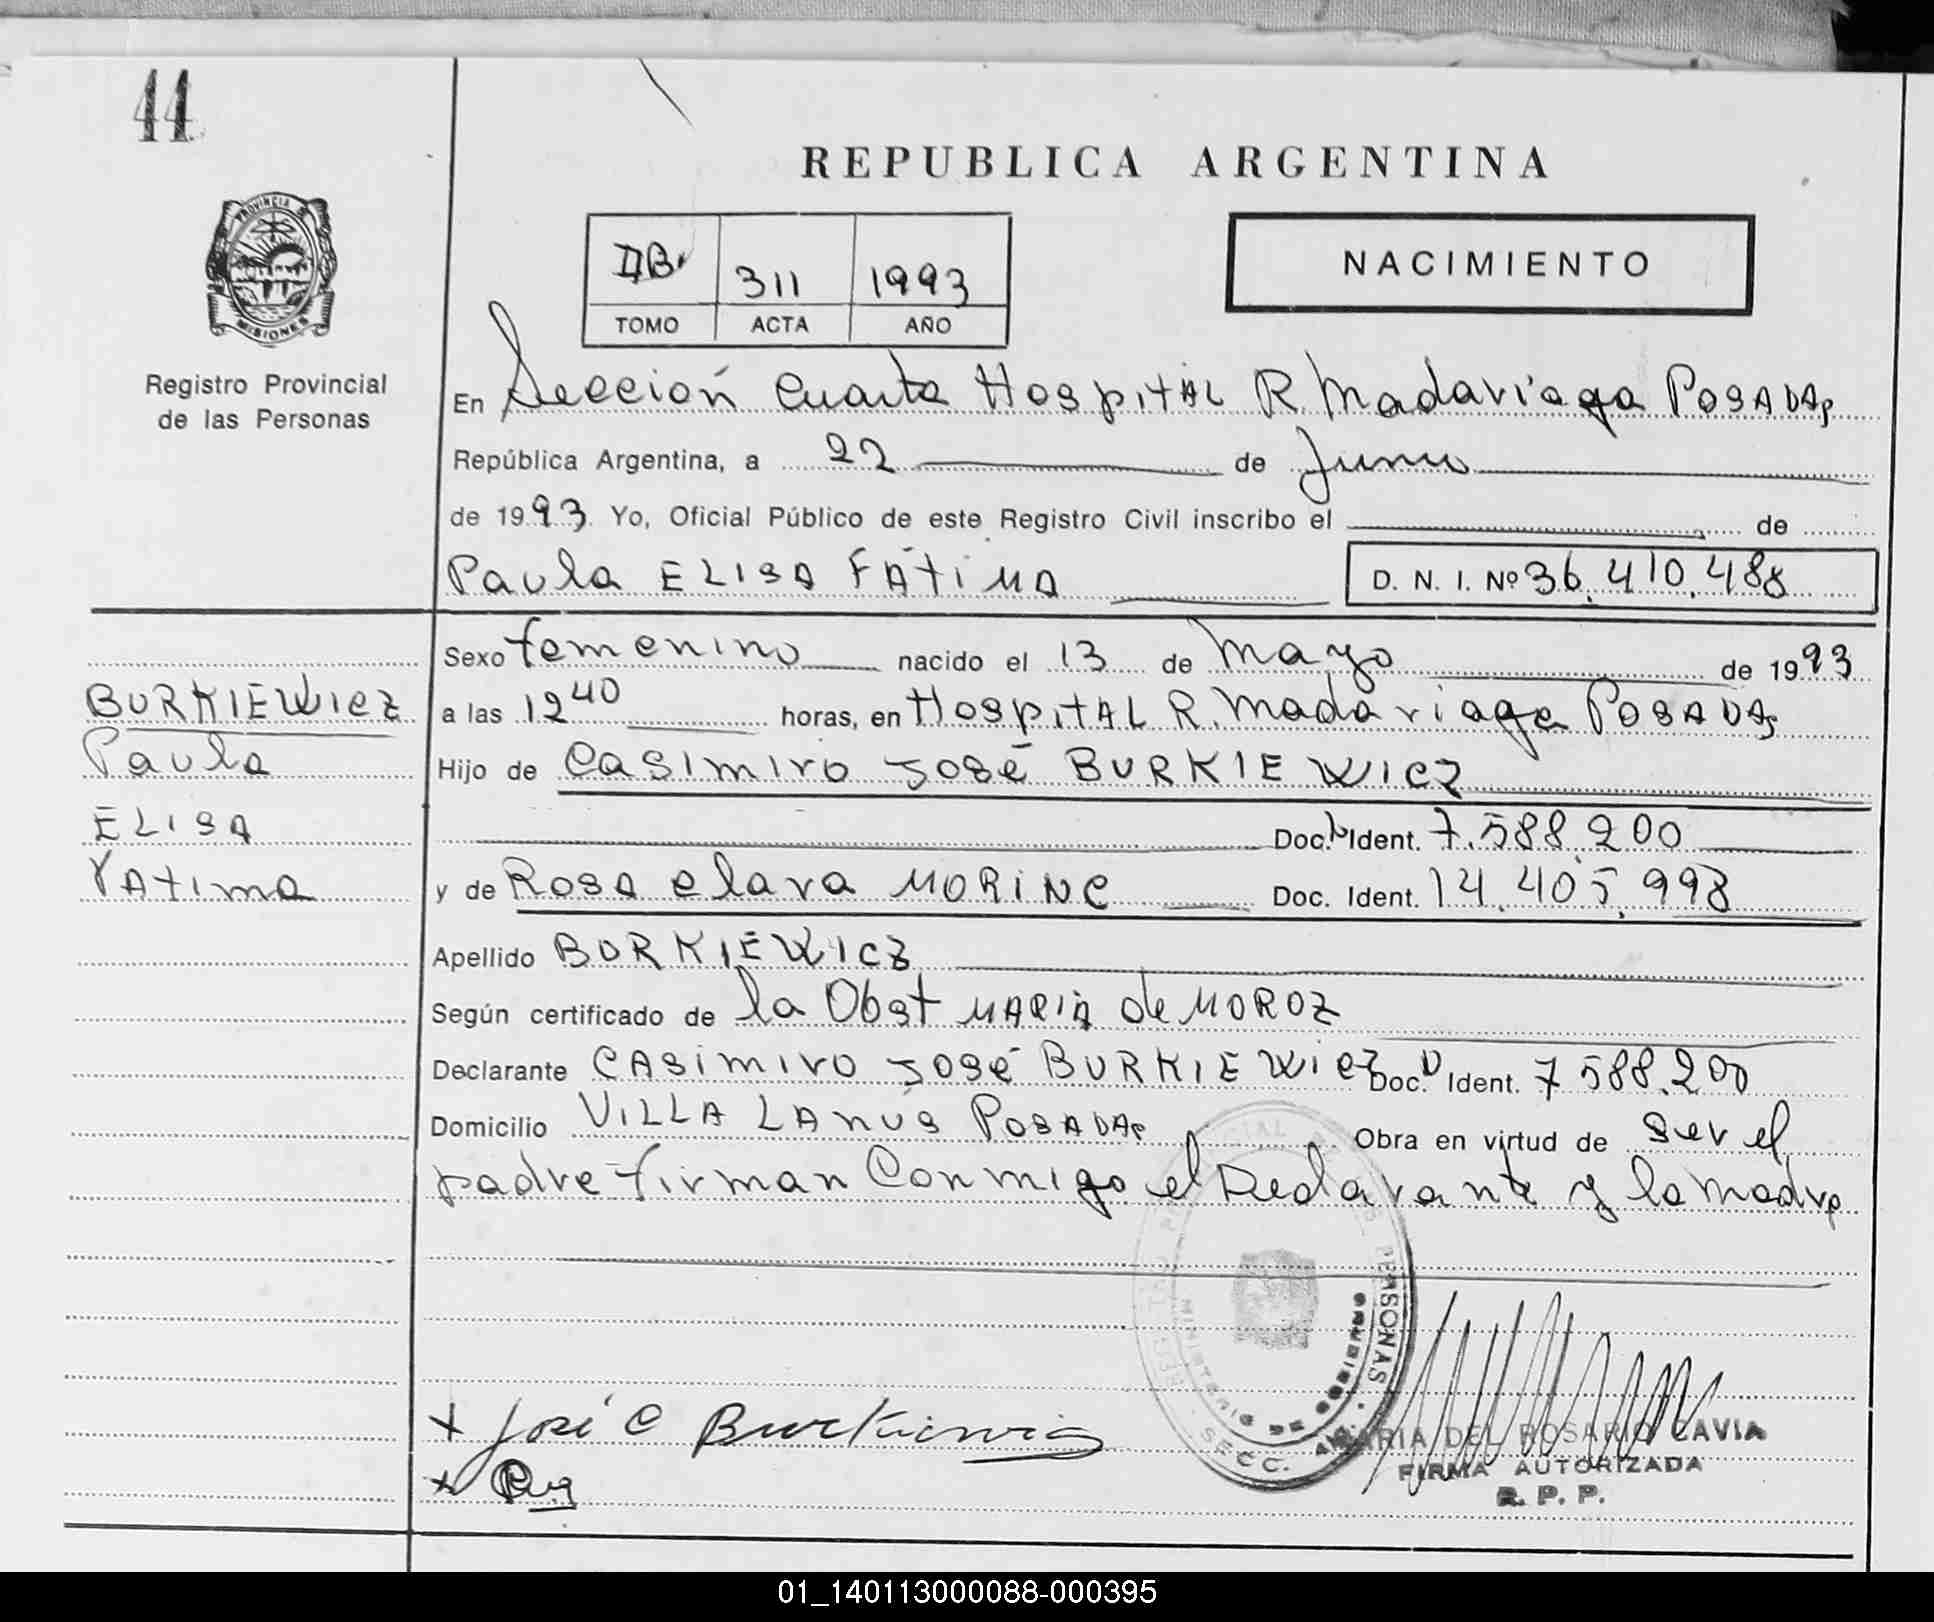 44
REPUBLICA ARGENTINA
PROVINCIA DE
MISIONES
Registro Provincial
de las Personas
311 1993
TOMO ACTA AÑO
NACIMIENTO
En Sección Cuarta Hospital R. Madariaga Posadas
República Argentina, a 22 de Junio
de 1993 Yo, Oficial Público de este Registro Civil inscribo el de
Paula ELISA FÁtiMA D. N. I. Nº 36.410.488
Sexo femenino nacido el 13 de Mayo de 1993
a las 12 40 horas, en Hospital R. Madariaga Posadas
Hijo de Casimiro José BURKIEWICZ
Doc. Ident. 7.588.200
y de Rosa Clara MORINC Doc. Ident. 14.405.998
Apellido BURKIEWICZ
Según certificado de la Obst MARIA de MOROZ
Declarante CASimiro José BURKIEWicZ Doc. Ident. 7 588.200
Domicilio VILLA LANÚS POSADAS Obra en virtud de ser el
padre firman Conmigo el Declarante y la madre
BURKIEWicz
Paula
ELISA
FAtima
REGISTRO PROVINCIAL DE LAS PERSONAS
MINISTERIO DE GOBIERNO
SECC.
José C Burkiewicz
MARIA DEL ROSARIO CAVIA
FIRMA AUTORIZADA
R. P. P.
01_140113000088-000395